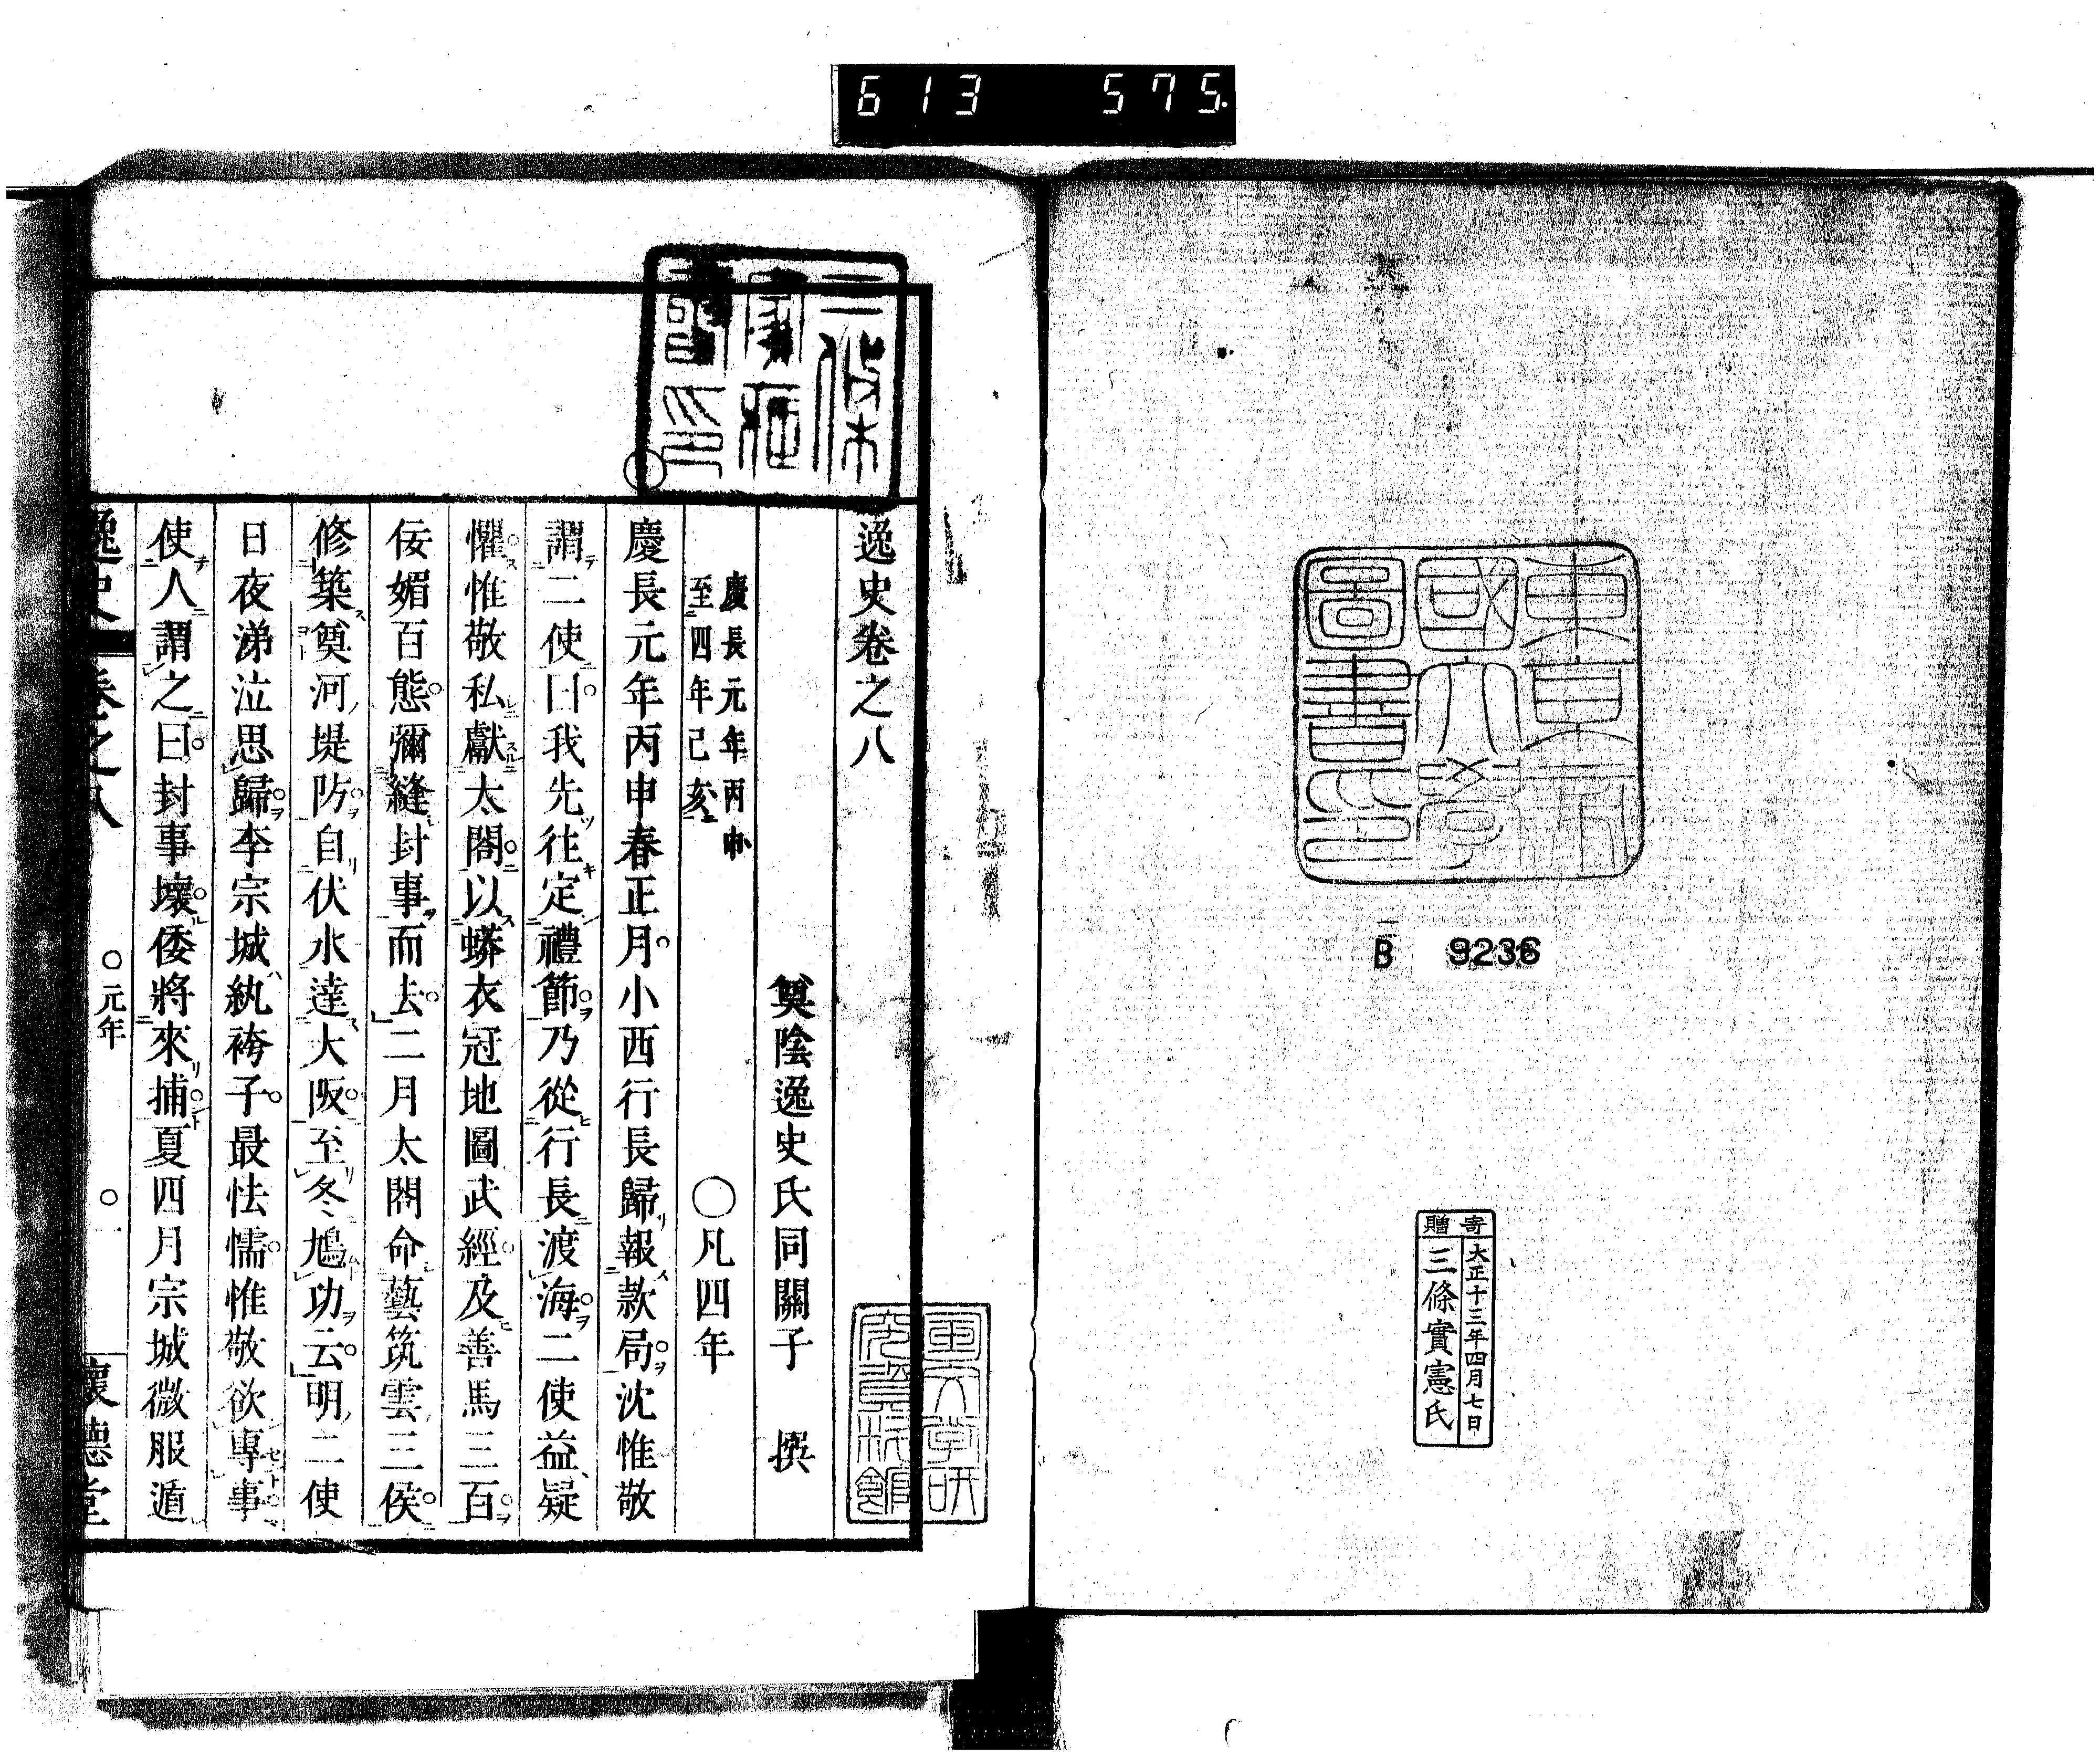 613 575
東京帝
國大學
圖書印
B 9236
寄贈
大正十三年四月七日
三條實憲氏
三條
家藏
書印
逸史卷之八
奠陰逸史氏同關子 撰
慶長元年丙申
至四年己亥
○凡四年
慶長元年丙申春正月小西行長歸報款局沈惟敬
謂二使曰我先往定禮節乃從行長渡海二使益疑
懼惟敬私獻太閤以蟒衣冠地圖武經及善馬三百
佞媚百態彌縫封事而去二月太閤命藝筑雲三侯
修築奠河堤防自伏水達大阪至冬鳩功云明二使
日夜涕泣思歸李宗城紈袴子最怯懦惟敬欲專事
使人謂之曰封事壞倭將來捕夏四月宗城微服遁
逸史 卷之八 ○元年 ○一 懷德堂